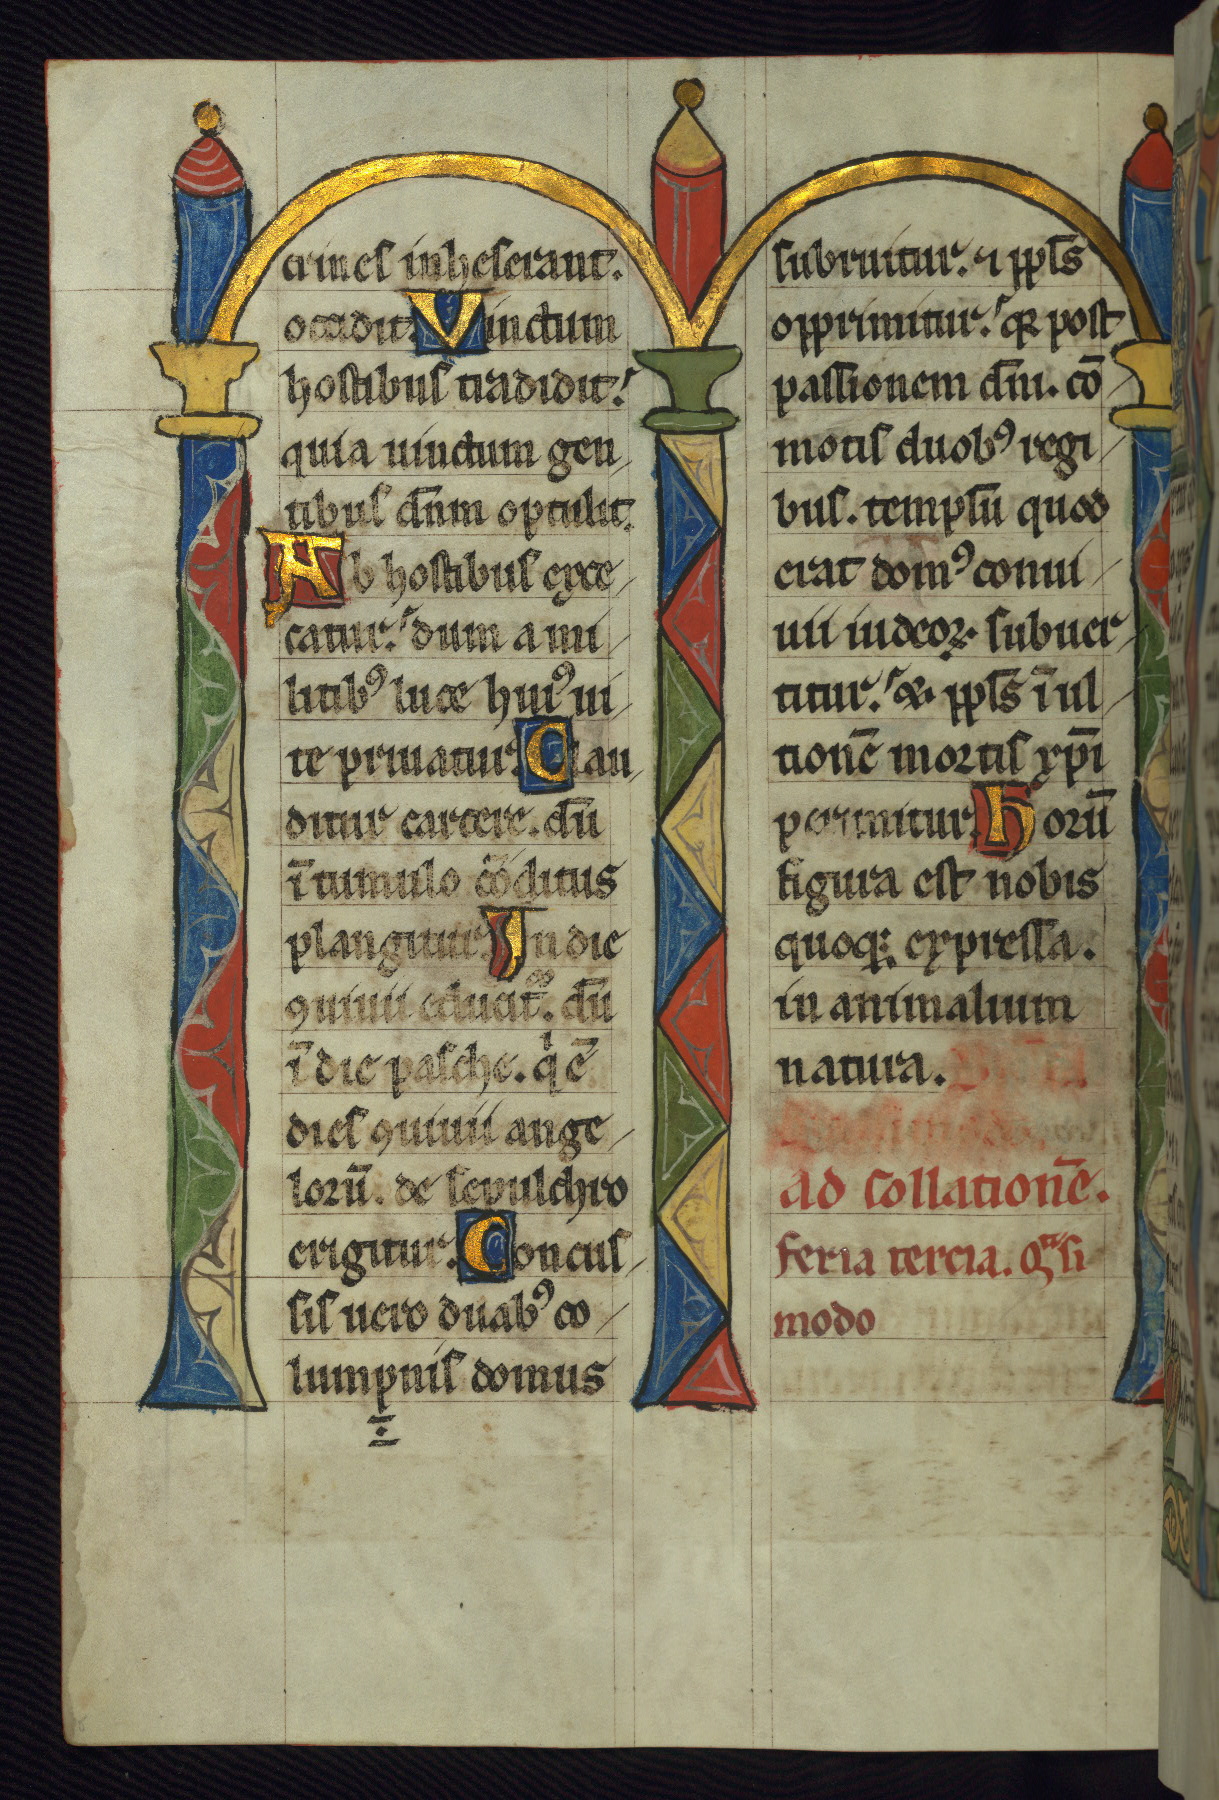 crines inheserant.
occidit. Vinctum
hostibus tradidit:
quia uinctum gen
tibus dn̄m optulit.
Ab hostibus exce
catur: dum a mi
litibꝰ luce huiꝰ ui
te priuatur. Clau
ditur carcere. dū
ī tumulo cōditus
plangitur. In die
ꝯuiuii educit᷑. dū
ī die pasche. qͥ ē
dies ꝯuiuii ange
lorū. de sepulchro
erigitur. Concus
sis uero duabꝰ co
lumpnis domus
subruitur. ⁊ ppl̄s
opprimitur: qꝛ post
passionem dn̄i. cō
motis duobꝰ regi
bus. templū quod
erat domꝰ conui
uii iudeoꝝ. subuer
titur: & ppl̄s ī ul
tionē mortis xp̄i
perimitur. Horū
figura est nobis
quoqꝫ expressa.
in animalium
natura.
ad collationē.
feria tercia. Qͣsi
modo